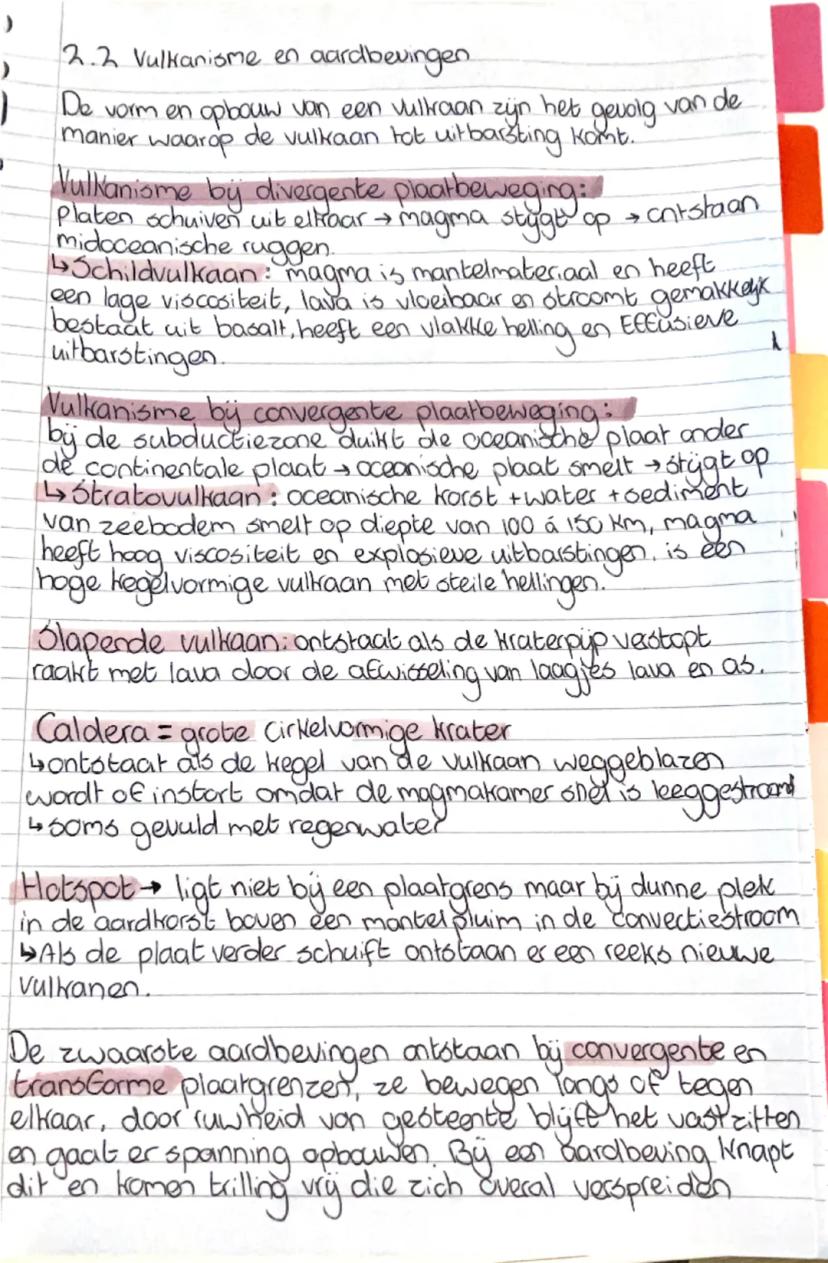 2.2 Vulkanisme en aardbevingen
De vorm en opbouw van een vulkaan zijn het gevolg van de
manier waarop de vulkaan tot uitbarsting komt.
Vulkanisme bij divergente plaatbeweging:
Platen schuiven uit elkaar → magma stijgt op → ontstaan
midoceanische ruggen.
↳ Schildvulkaan: magma is mantelmateriaal en heeft
een lage viscositeit, lava is vloeibaar en stroomt gemakkelijk
bestaat uit basalt, heeft een vlakke helling en Effusieve
uitbarstingen.
Vulkanisme bij convergente plaatbeweging:
bij de subductiezone duikt de oceanische plaat onder
de continentale plaat → oceanische plaat smelt → stijgt op
↳ Stratovulkaan: oceanische korst + water + sediment
van zeebodem smelt op diepte van 100 á 150 km, magma
heeft hoog viscositeit en explosieve uitbarstingen. is een
hoge kegelvormige vulkaan met steile hellingen.
Slapende vulkaan: ontstaat als de kraterpijp verstopt
raakt met lava door de afwisseling van laagjes lava en as.
Caldera = grote cirkelvormige krater
↳ ontstaat als de kegel van de vulkaan weggeblazen
wordt of instort omdat de magmakamer snel is leeggestroomd
↳ soms gevuld met regenwater
Hotspot → ligt niet bij een plaatgrens maar bij dunne plek
in de aardkorst boven een mantelpluim in de convectiestroom
↳ Als de plaat verder schuift ontstaan er een reeks nieuwe
vulkanen.
De zwaarste aardbevingen ontstaan bij convergente en
transforme plaatgrenzen, ze bewegen langs of tegen
elkaar, door ruwheid van gesteente blijft het vastzitten
en gaat er spanning opbouwen. Bij een aardbeving knapt
dit en komen trilling vrij die zich overal verspreiden